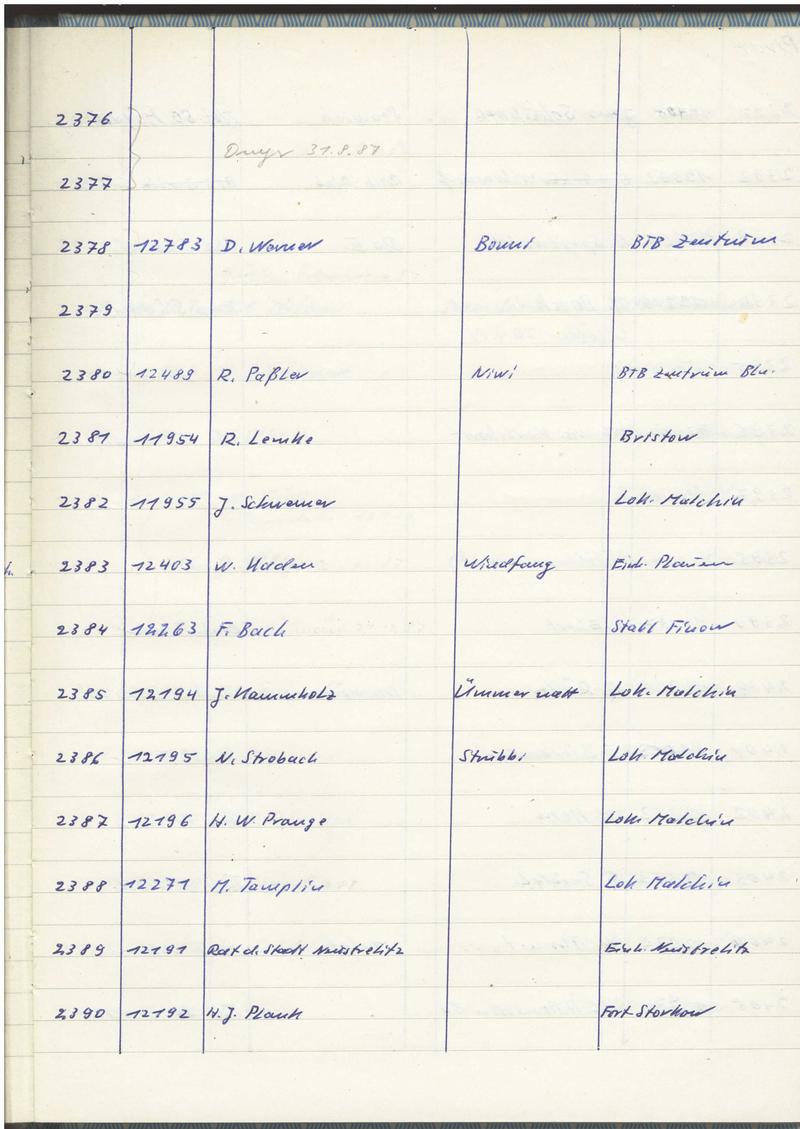 2376
31.8.87
2377
2378 12783 D. Werner Bounti BTB Zentrum
2379
2380 12489 R. Paßler Niwi BTB Zentrum Bln.
2381 11954 R. Lemke Bristow
2382 11955 J. Schwemer Lok. Malchin
2383 12403 W. Haden Windfang Einh. Plauen
2384 12263 F. Bach Stahl Finow
2385 12194 J. Hammholz Ümmer natt Lok. Malchin
2386 12195 N. Strobach Strübbi Lok. Malchin
2387 12196 H. W. Prange Lok Malchin
2388 12271 M. Tamplin Lok Malchin
2389 12191 Rat d. Stadt Neustrelitz Einh. Neustrelitz
2390 12192 H. J. Plank Fort. Storkow